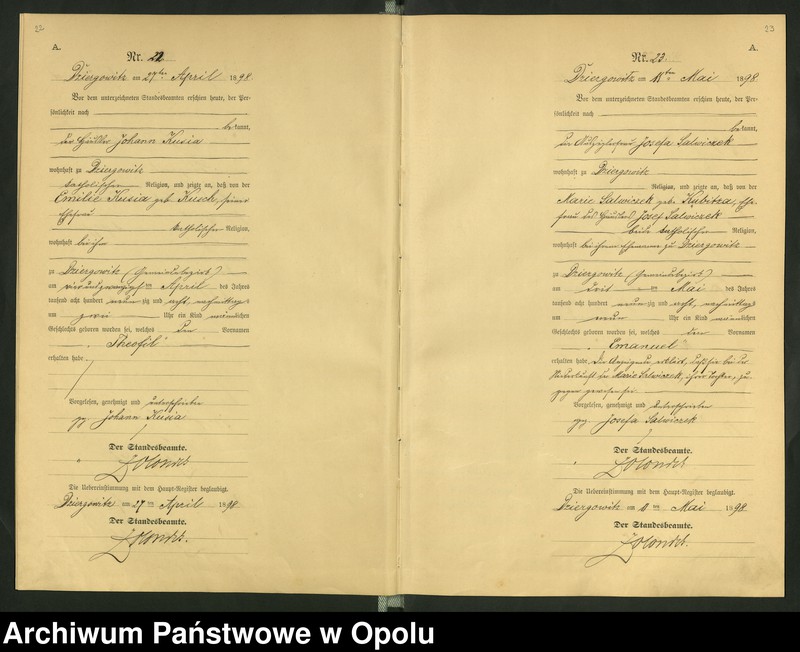 22
A.
Nr. 22
Dziergowitz am 27ten April 1898.
Vor dem unterzeichneten Standesbeamten erschien heute, der Per-
sönlichkeit nach
bekannt,
der Häusler Johann Kusia
wohnhaft zu Dziergowitz
katholischer Religion, und zeigte an, daß von der
Emilie Kusia geb. Kusch, seiner
Ehefrau
katholischer Religion,
wohnhaft bei ihm
zu Dziergowitz (Gemeindebezirk)
am vierundzwanzigsten April des Jahres
tausend acht hundert neunzig und acht, nachmittags
um zwei Uhr ein Kind männlichen
Geschlechts geboren worden sei, welches den Vornamen
Theofil
erhalten habe.
Vorgelesen, genehmigt und unterschrieben
gez. Johann Kusia
Der Standesbeamte.
Die Uebereinstimmung mit dem Haupt-Register beglaubigt.
Dziergowitz am 27ten April 1898.
Der Standesbeamte.
23
A.
Nr. 23.
Dziergowitz am ten Mai 1898.
Vor dem unterzeichneten Standesbeamten erschien heute, der Per-
sönlichkeit nach
bekannt,
die Josefa Salwiczek
wohnhaft zu Dziergowitz
Religion, und zeigte an, daß von der
Marie Salwiczek geb. Kubitza, Ehe-
frau des Häuslers Josef Salwiczek
beide katholischer Religion,
wohnhaft bei ihrem Ehemann zu Dziergowitz
zu Dziergowitz (Gemeindebezirk)
am drei ten Mai des Jahres
tausend acht hundert neunzig und acht, nachmittags
um neun Uhr ein Kind männlichen
Geschlechts geboren worden sei, welches den Vornamen
Emanuel
erhalten habe. Die Anzeigende erklärt, daß sie bei der
Niederkunft der Marie Salwiczek, ihrer Tochter, zu-
gegen gewesen sei.
Vorgelesen, genehmigt und unterschrieben
gez. Josefa Salwiczek
Der Standesbeamte.
Die Uebereinstimmung mit dem Haupt-Register beglaubigt.
Dziergowitz am ten Mai 1898.
Der Standesbeamte.
Archiwum Państwowe w Opolu